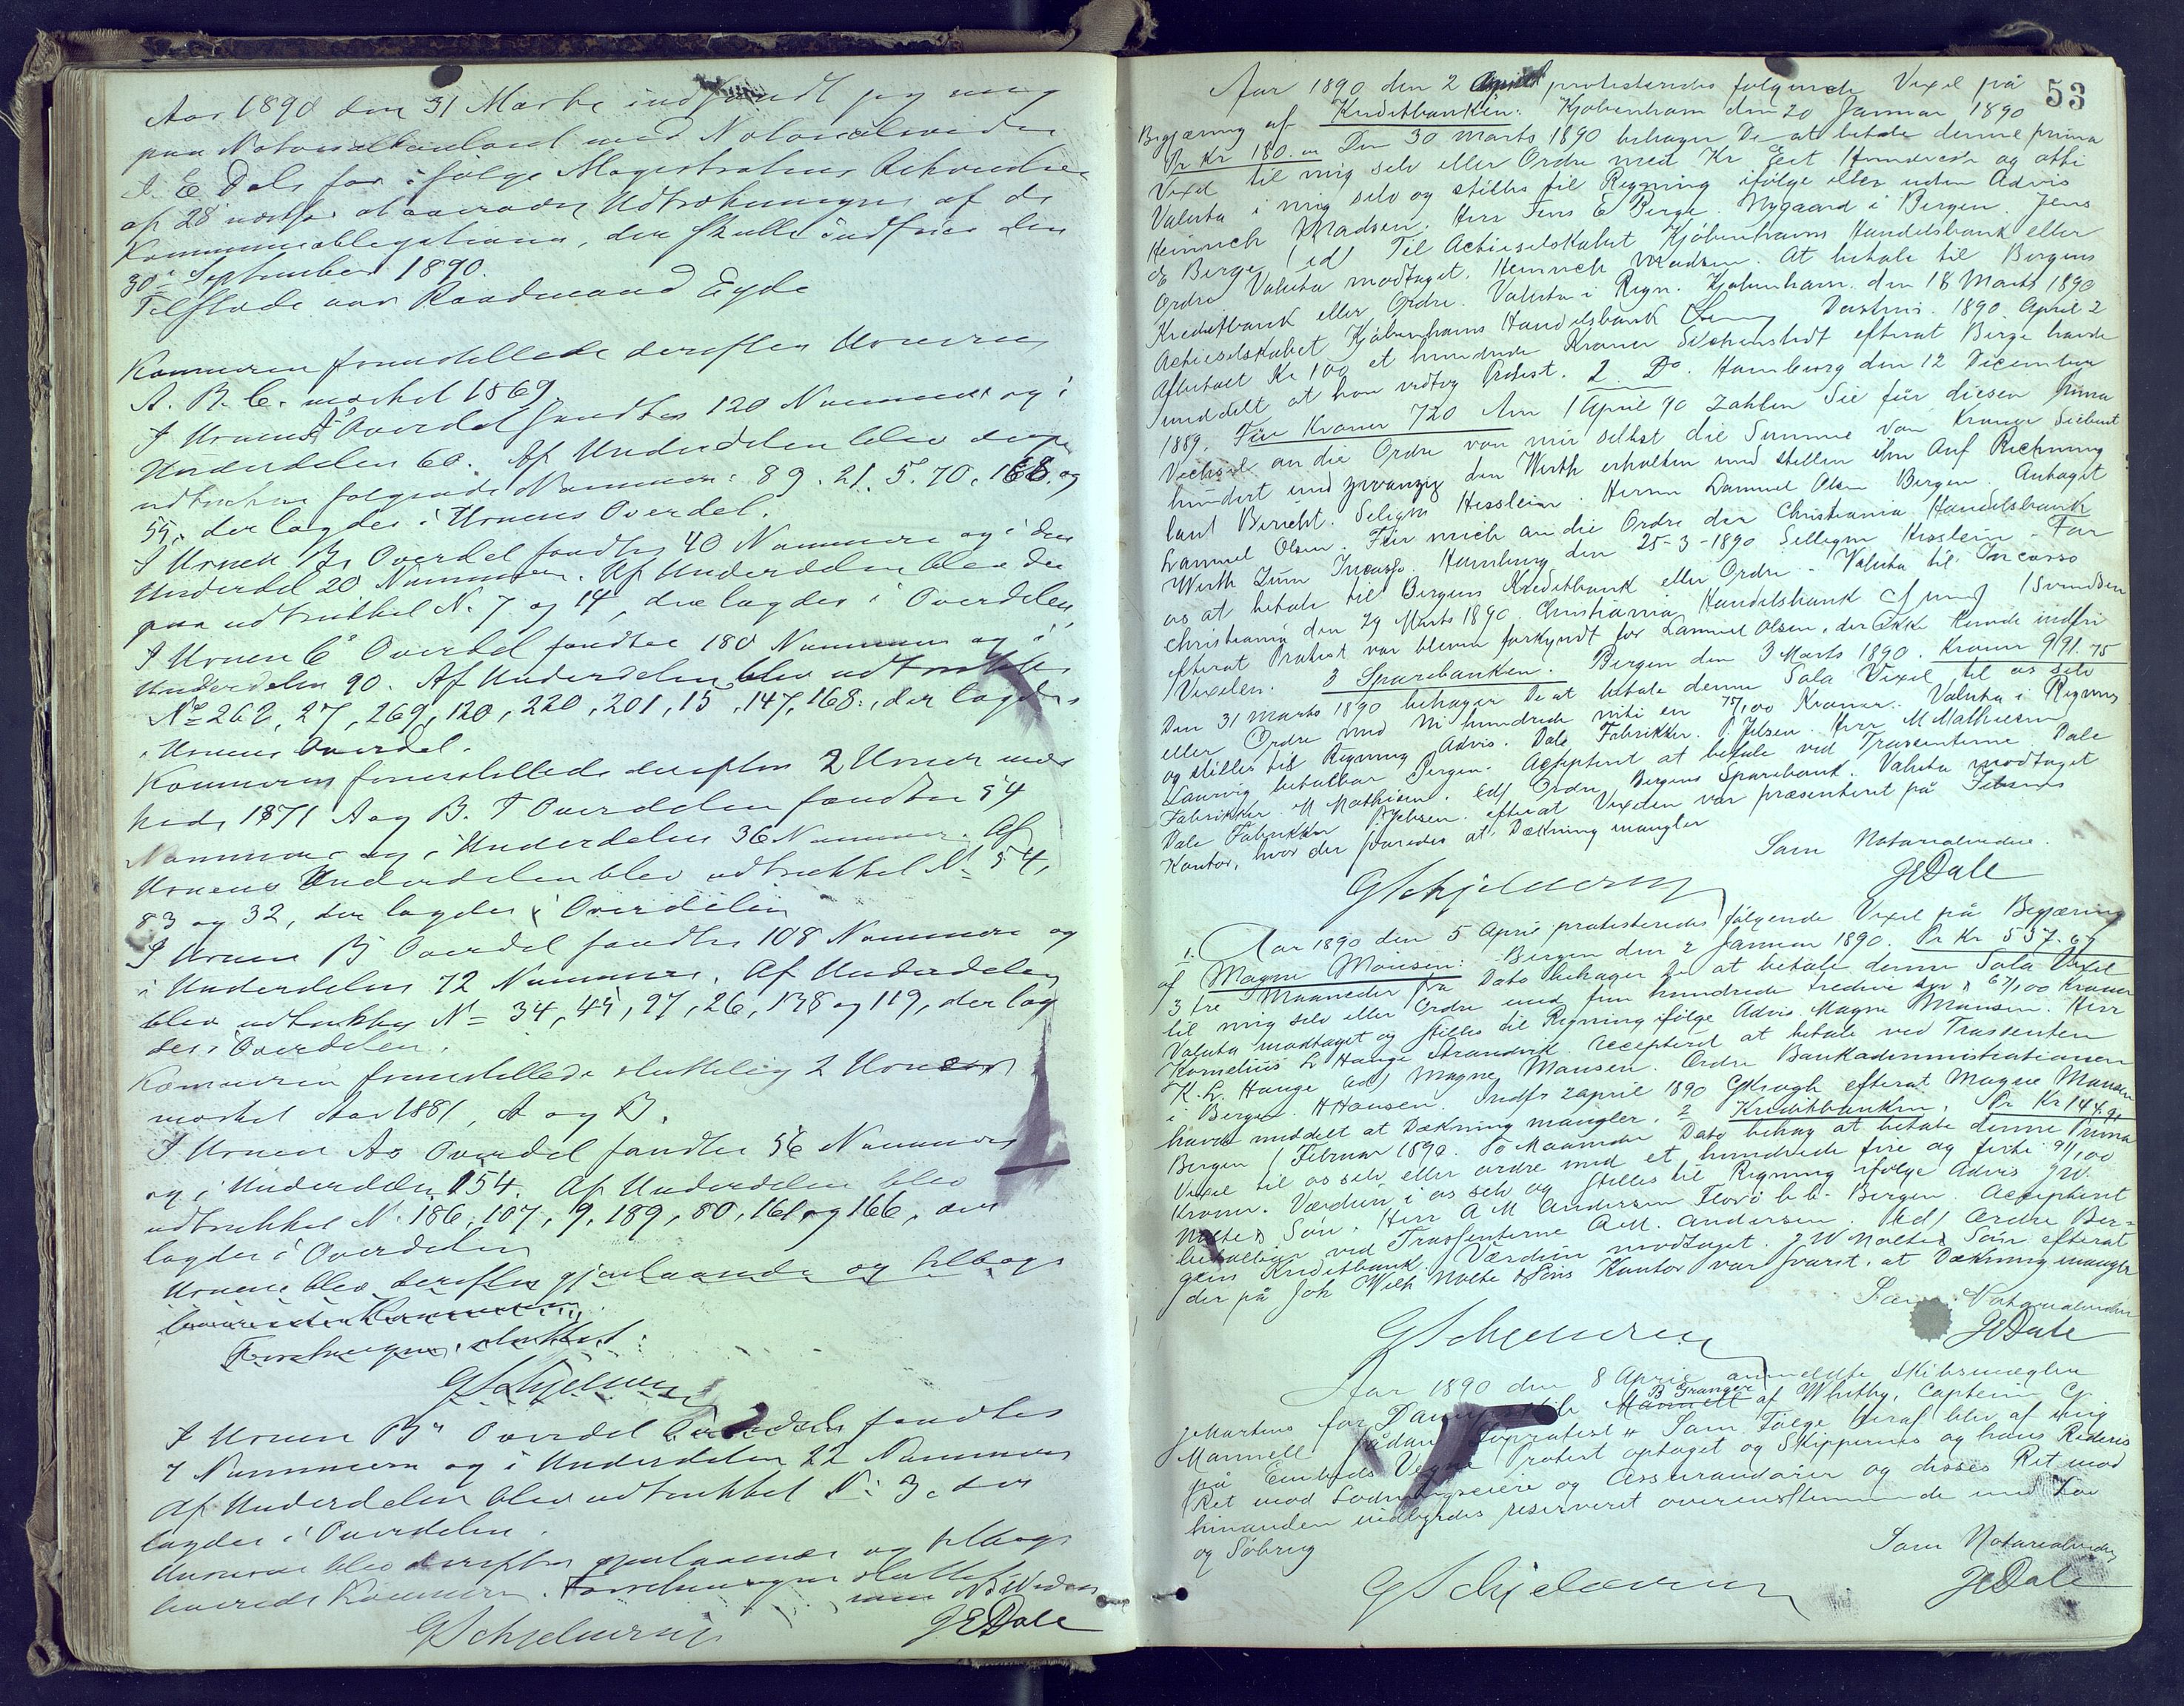 Aar 1890 den 31 Marts indfandt jeg mig
paa Notarialkontoret med Notarialvidne
J. E Dale for ifølge Magistratens Rekvisition
af 28 næstfør at overvære Udtrækningen af de
Kommuneobligationer, der skulle indfries den
30 September 1890.
Tilstede var Raadmand Eyde
Kæmneren fremstillede derefter Urnerne
A. B. C. mærket 1869.
I Urnens A Overdel fandtes 120 Nummere og i
Underdelen 60. Af Underdelen blev derpaa
udtrukne følgende Nummere: 89. 21. 5. 70. 168. og
55, der lagdes i Urnens Overdel.
I Urnen Bs Overdel fandtes 40 Nummere og i den
Underdel 20 Nummere. Af Underdelen blev der
paa udtrukket N. 7 og 14, der lagdes i Overdelen
I Urnen C's Overdel fandtes 180 Nummere og i
Underdelen 90. Af Underdelen blev udtrukket
No 262, 27, 269, 120, 220, 201, 15, 147, 168, der lagdes
i Urnens Overdel.
Kæmneren fremstillede derefter 2 Urner mær
kede 1871 A og B. I Overdelen fandtes 54
Nummere og i Underdelen 36 Nummere. Af
Urnens Underdelen blev udtrukket No 54,
83 og 32, der lagdes i Overdelen
I Urnen B's Overdel fandtes 108 Nummere og
i Underdelen 72 Nummere. Af Underdelen
blev udtrukket No 34, 45, 97, 26, 138 og 119, der lag
des i Overdelen.
Kæmneren fremstillede sluttelig 2 Urner
mærket Aar 1881, A og B.
I Urnen As Overdel fandtes 56 Nummere
og i Underdelen 154. Af Underdelen blev
udtrukket N. 186, 107, 9, 189, 80, 161 og 166, der
lagdes i Overdelen
Urnerne blev derefter gjenlaasede og tilbage
leverede Kæmneren.
Forretningen sluttet:
G Schjelderup
I Urnen B's Overdel fandtes
7 Nummere og i Underdelen 22 Nummere
Af Underdelen blev udtrukket N: 3, der
lagdes i Overdelen.
Urnerne blev derefter gjenlaasede og tilbage
leverede Kæmneren. Forretningen sluttet
som N. Vidne
G Schjelderup JEDale
53
Aar 1890 den 2 April protesteredes følgende Vexel på
Begjæring af Kreditbanken: Kjøbenhavn den 20 Januar 1890
Pr Kr 180. Den 30 Marts 1890 behager De at betale denne prima
Vexel til mig selv eller Ordre med Kr Eet Hundrede og otti
Valuta i mig selv og stilles til Regning ifølge eller uden Advis
Heinrich Madsen. Herr Jens E Berge. Nygaard i Bergen. Jens
E Berge (ed) Til Actieselskabet Kjøbenhavns Handelsbank eller
Ordre Valuta modtaget. Heinrich Madsen. At betale til Bergens
Kreditbank eller Ordre. Valuta i Regn. Kjøbenhavn. den 18 Marts 1890
Actieselskabet Kjøbenhavns Handelsbank 1890 April 2
Afbetalt Kr 100 et hundrede Kroner efterat Berge havde
meddelt at han vedtog Protest. 2 Do. Hamburg den 12 December
1889. Für Kroner 720 Am 1 April 90 zahlen Sie für diesen Prima
Wechsel an die Ordre von mir selbst die Summe von Kronor Siebent
hundert und zwanzig den Werth erhalten und stellen ihn auf Rechnung
laut Bericht. Seligm Hesslein. Herrn Lammel Olsen Bergen. Antaget
Lammel Olsen. Für mich an die Ordre der Christiania Handelsbank
Werth zum Incasso. Hamburg den 25-3-1890 Seligm Hesslein - For
os at betale til Bergens Kreditbank eller Ordre - Valuta til Incasso
Christiania den 29 Marts 1890 Christiania Handelsbank (Svendsen
efterat Protest var bleven forkyndt for Lammel Olsen, der ikke kunde indfri
Vexelen. 3 Sparebanken. Bergen den 3 Marts 1890. Kroner 991.75
Den 31 Marts 1890 behager De at betale denne Sola Vexel til os selv
eller Ordre med Ni hundrede nitti en 75/100 Kroner. Valuta i Regning
og stilles til Regning Advis. Dale Fabrikker. P. Jebsen. Herr M Mathiesen
Laurvig betalbar Bergen. Accepteret at betale ved Trassenterne Dale
Fabrikker M Mathiesen. Ed/ Ordre Bergens Sparebank. Valuta modtaget
Dale Fabrikker P. Jebsen. efterat Vexelen var præsenteret på Jebsens
Kontor, hvor der svaredes at Dækning mangler
Som Notarialvidne.
G Schjelderup JEDale
1. Aar 1890 den 5 April protesteredes følgende Vexel på Begjæring
af Magne Mansen: Bergen den 2 Januar 1890. Pr Kr 537.67
3 tre Maaneder fra Dato behager De at betale denne Sola Vexel
til mig selv eller Ordre med fem hundrede tredive syv & 67/100 Kroner
Valuta modtaget og stilles til Regning ifølge Advis Magne Mansen. Herr
Kornelius L Hauge Strandvik. Accepterd at betale ved Trassenten
K. L. Hauge (ed) Magne Mansen. Ordre Bankadministrationen
i Bergen. H Hansen. Indfr 2 april 1890 G Krogh efterat Magne Mansen
havde meddelt at Dækning mangler. 2 Kreditbanken. Pr Kr 144.91
Bergen 1 Februar 1890. To Maaneder Dato behag at betale denne Prima
Vexel til os selv eller ordre med et hundrede fire og førti 91/100
Kroner. Værdien i os selv og stilles til Regning ifølge Advis J W.
Nolte & Søn. Herr A M Andersen Florø b.b. Bergen. Accepteret
betalbar ved Trassenterne A.M. Andersen. (ed) Ordre Ber-
gens Kreditbank. Værdien modtaget. J W Nolte & Søn efterat
der på Joh Wilh Nolte & Søns Kontor var svaret, at Dækning mangler
Som Notarialvidne
G Schjelderup JEDale
Aar 1890 den 8 April anmeldte Skibsmægler
B Granger
J Martens for Dampskib Mannell af Whitby, Captein C
Mannell sådan Søprotest " Som Følge heraf blev af mig
på Embeds Vegne Protest optaget og Skipperens og hans Rederis
Ret mod Ladningseiere og Assurandører og disses Ret mod
hinanden indbyrdes reserveret overensstemmende med Lov
og Søbrug
Som Notarialvidne
G Schjelderup JEDale